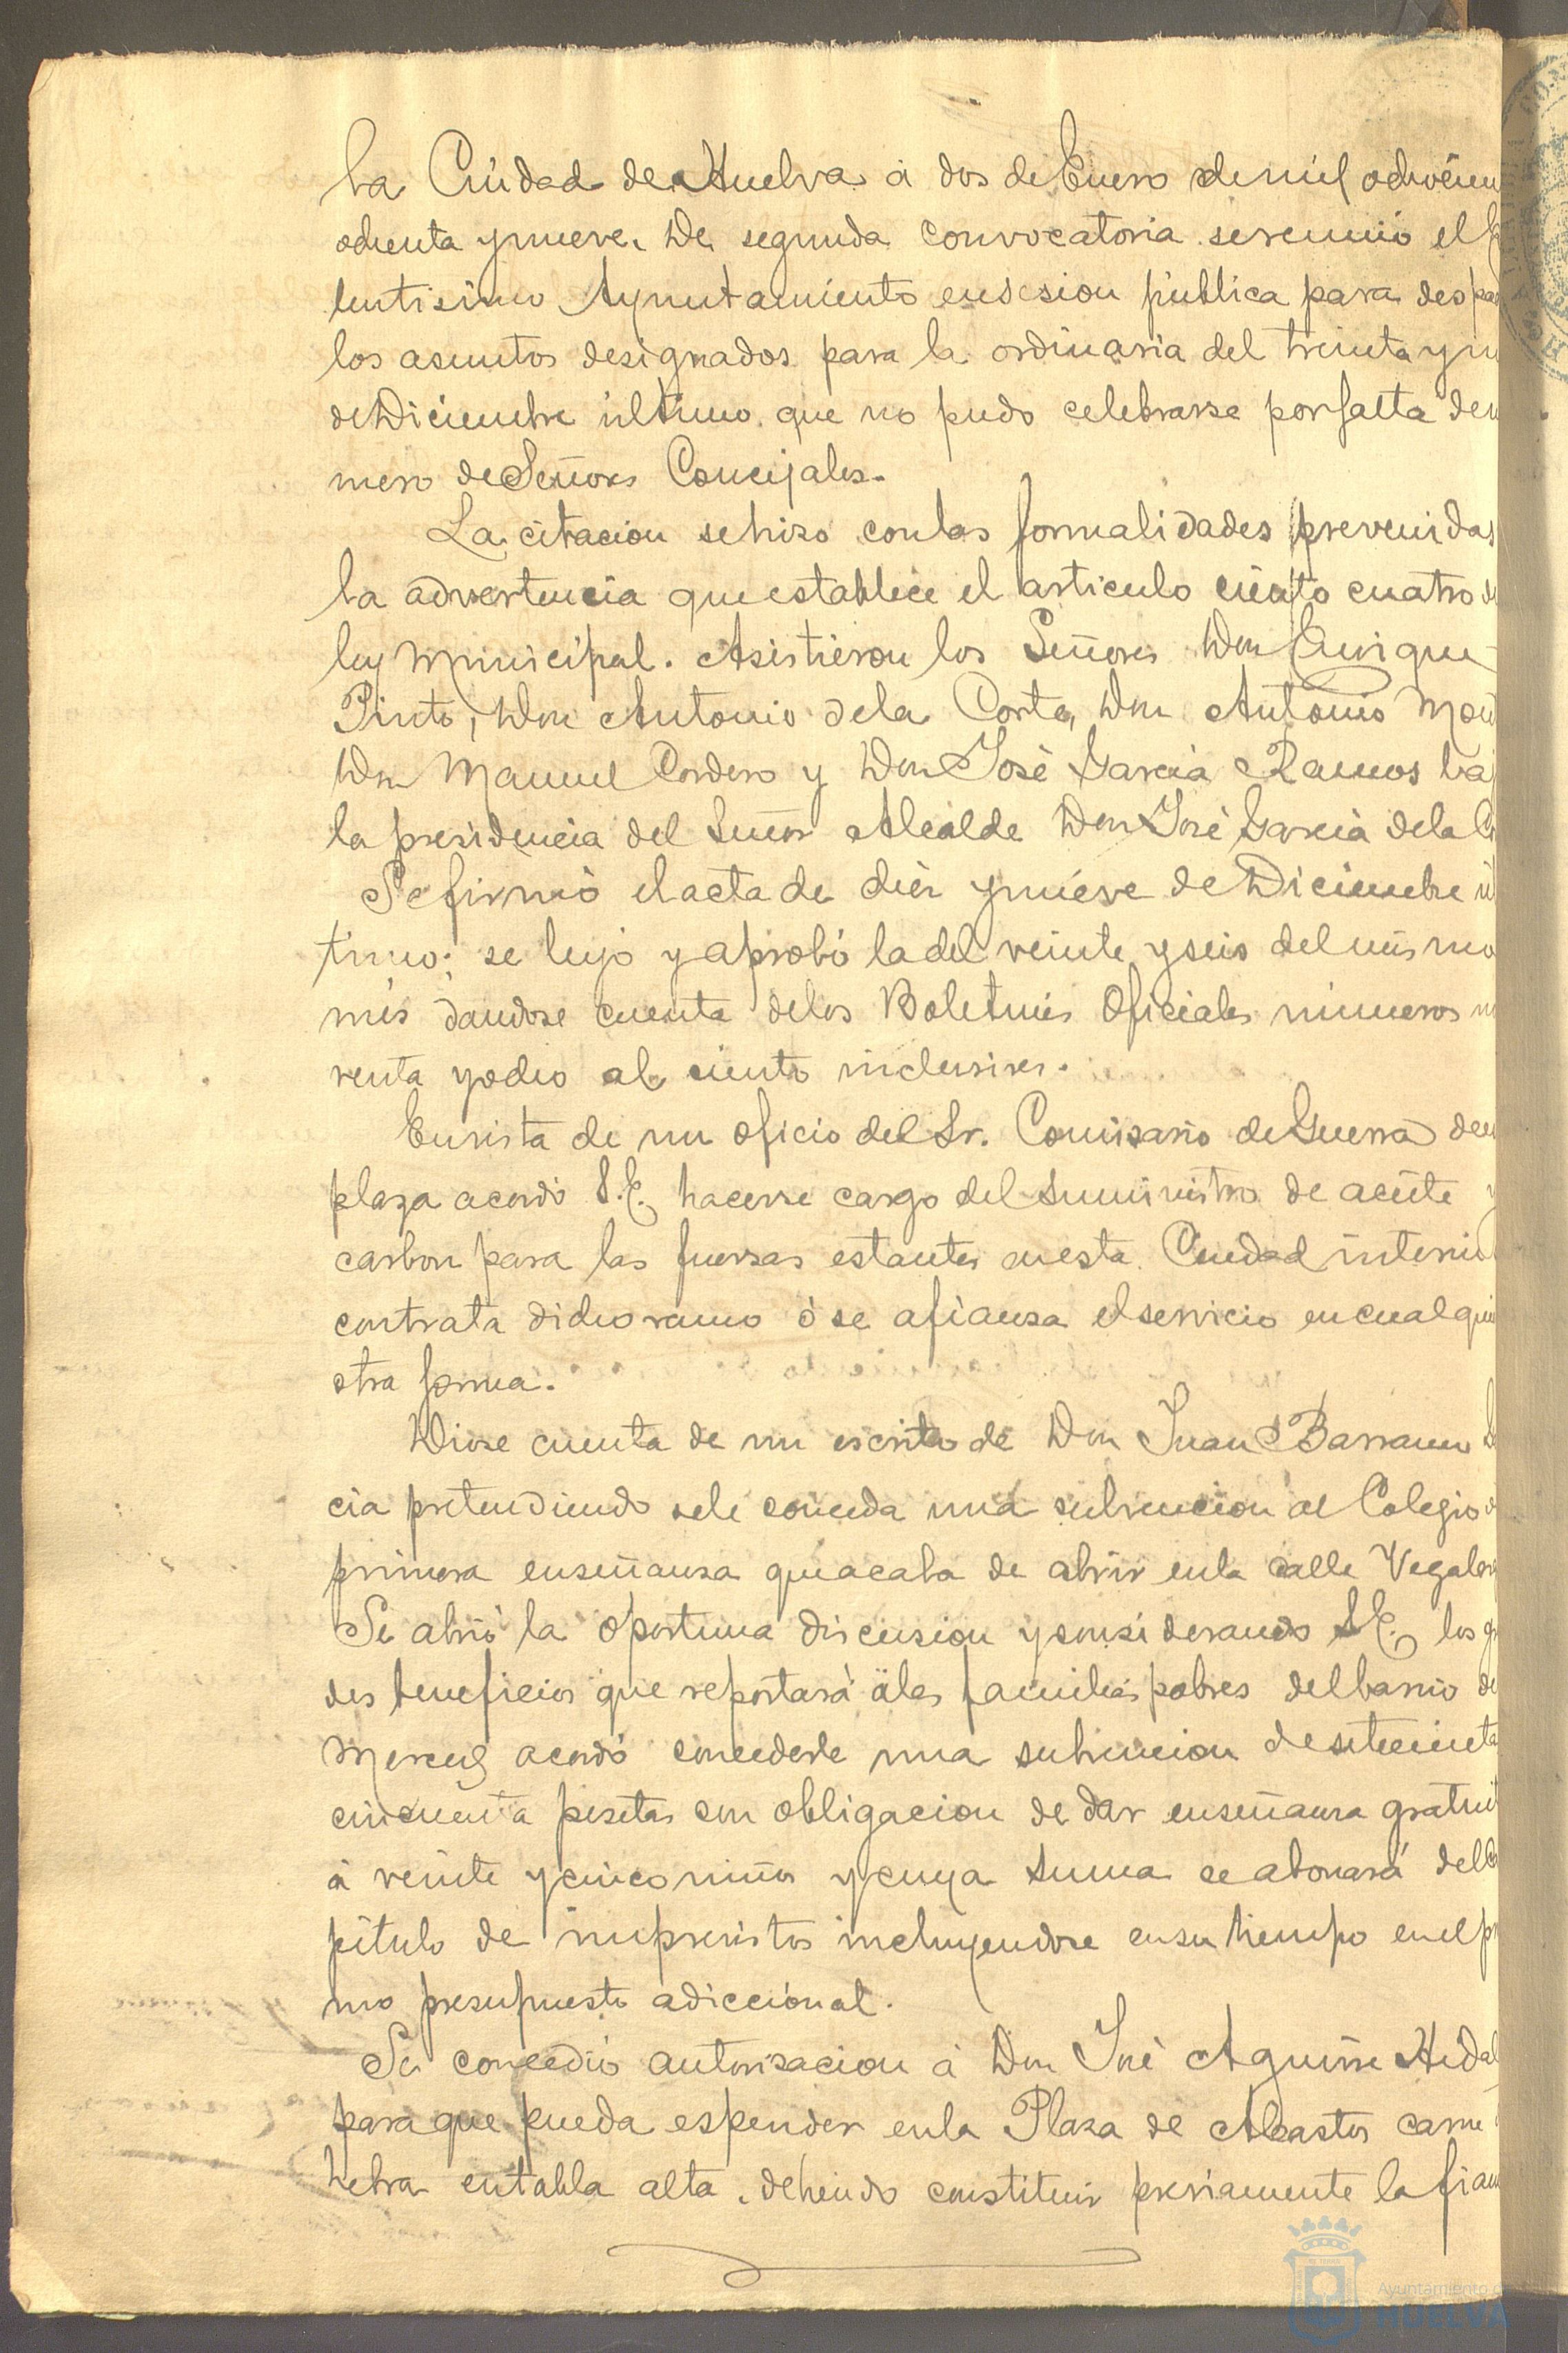 la Ciudad de Huelva á dos de Enero de mil ochocien
ochenta y nueve. De segunda convocatoria se reunió el
lentisimo Ayuntamiento en sesion pública para despa
los asuntos designados para la ordinaria del treinta y u
de Diciembre último que no pudo celebrarse por falta de n
mero de Señores Concejales.
La citacion se hizo con las formalidades prevenidas
la advertencia que establece el articulo ciento cuatro de
ley Municipal. Asistieron los Señores Don Enrique
Pinto, Don Antonio de la Corte, Don Antonio Mon
Don Manuel Cordero y Don José Garcia Ramos ba
la presidencia del Señor Alcalde Don José Garcia de la
Se firmó el acta de diez y nueve de Diciembre úl
timo; se leyó y aprobó la del veinte y seis del mismo
mes dandose cuenta de los Boletines Oficiales números no
venta y ocho al ciento inclusives.
En vista de un oficio del Sr. Comisario de Guerra de
plaza acordó S.E. hacerse cargo del suministro de aceite y
carbon para las fuerzas estantes en esta Ciudad interin
contrata dicho ramo ó se afianza el servicio en cualqui
otra forma.
Diose cuenta de un escrito de Don Juan Barranco
cia pretendiendo se le conceda una subvencion al Colegio d
primera enseñanza que acaba de abrir en la calle Vegalar
Se abrió la oportuna discusion y considerando S.E. los g
des beneficios que reportará á las familias pobres del barrio de
Merced acordó concederle una subvencion de setecienta
cincuenta pesetas con obligacion de dar enseñanza gratuit
á veinte y cinco niños y cuya suma se abonará del Ca
pitulo de imprevistos incluyendose en su tiempo en el pr
mo presupuesto adiccional.
Se concedió autorizacion á Don José Aguirre Hidal
para que pueda espender en la Plaza de Abastos carne
hebra en tabla alta, debiendo constituir previamente la fian
Ayuntamiento de
HUELVA